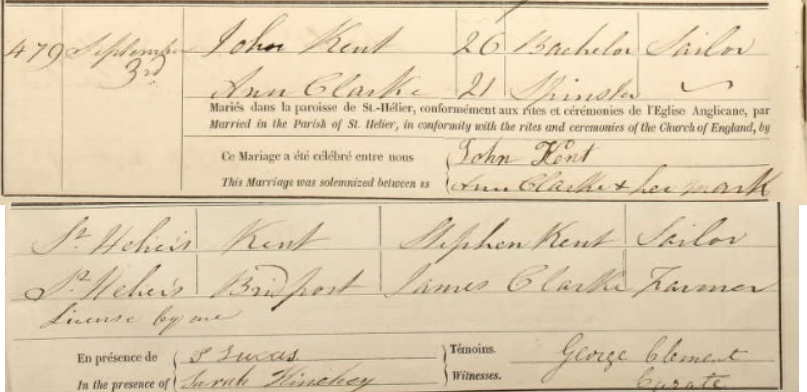 479 September John Kent 26 Bachelor Sailor
3rd Ann Clarke 21 Spinster
Mariés dans la paroisse de St.-Hélier, conformément aux rites et cérémonies de l'Eglise Anglicane, par
Married in the Parish of St. Helier, in conformity with the rites and ceremonies of the Church of England, by
Ce Mariage a été célébré entre nous John Kent
This Marriage was solemnized between us Ann Clarke x her mark
St. Heliers Kent Stephen Kent Sailor
St. Heliers Bridport James Clarke Farmer
License by me
En présence de P Lucas Témoins. George Clement
In the presence of Sarah Hinchey Witnesses. Curate